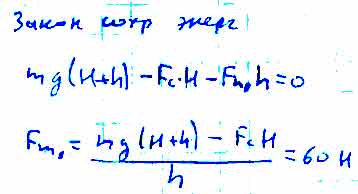 Закон сохр энерг
mg(H+h) - Fc·H - Fтр h = 0
Fтр = (mg(H+h) - FcH) / h = 60 Н